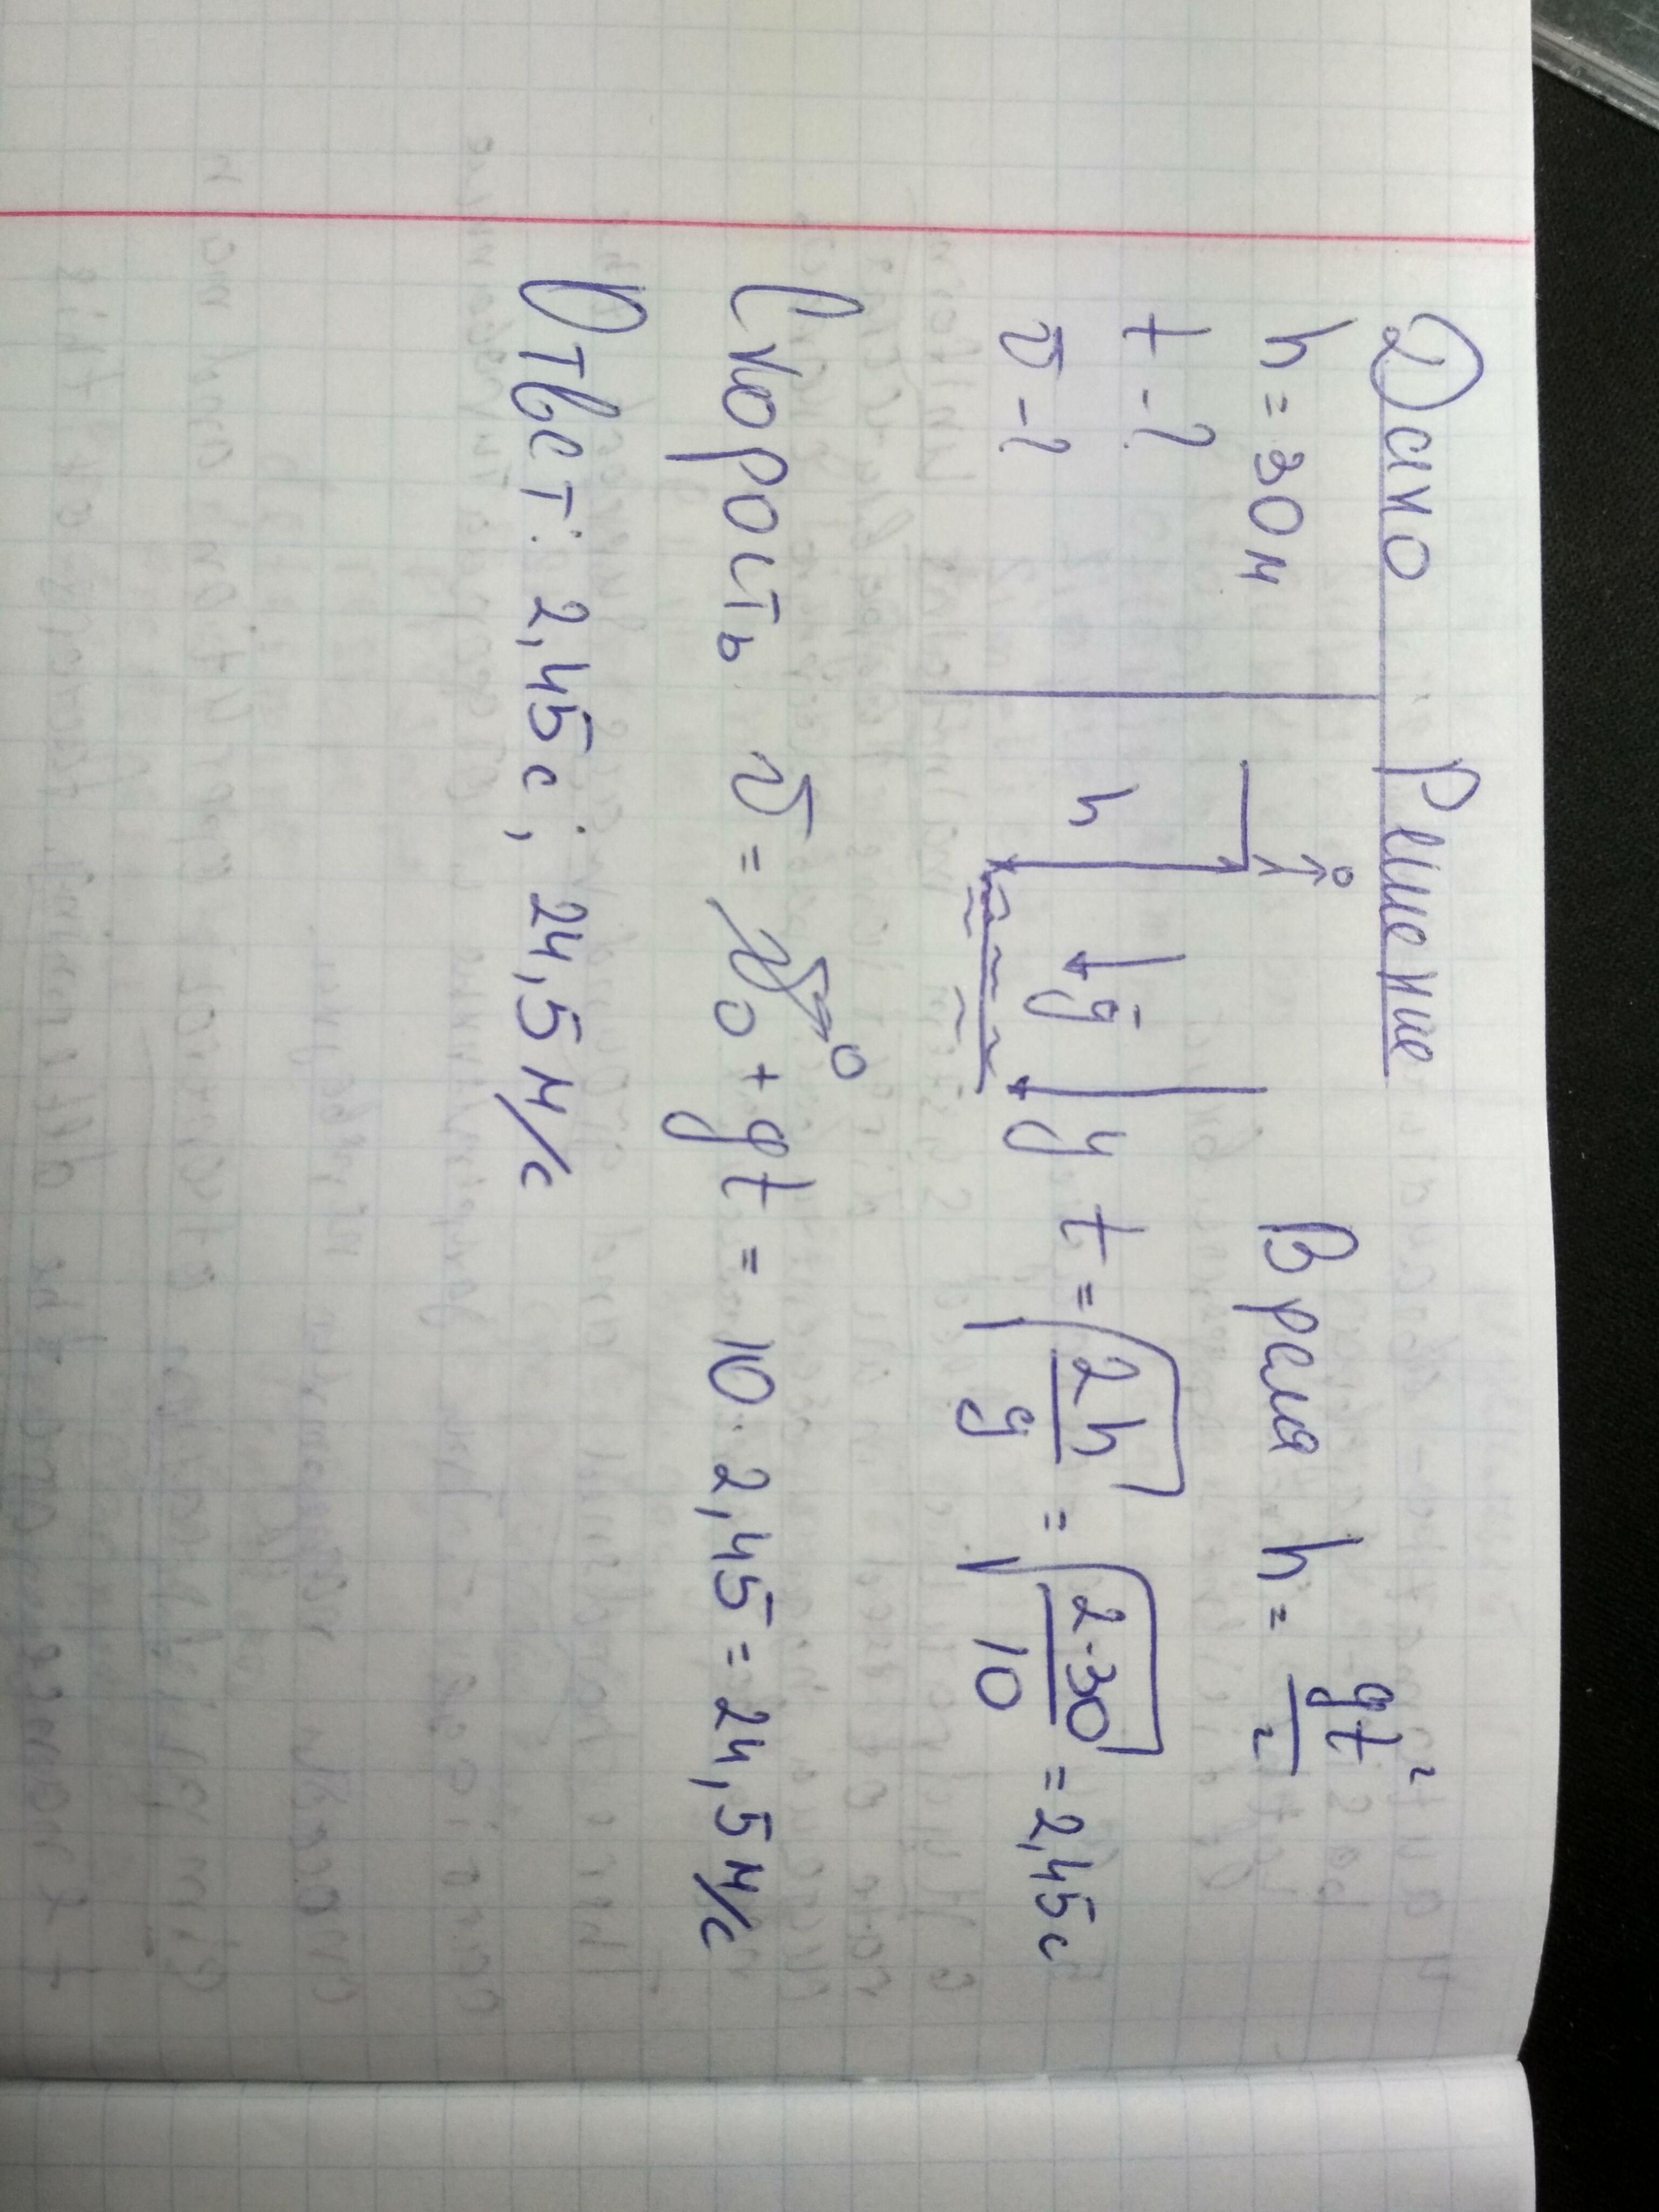 Дано Решение
h = 30 м
t - ?
v - ?
h g y
Время h = gt²/2
t = √(2h/g) = √(2·30/10) = 2,45 с
Скорость v = v₀ + gt = 10 · 2,45 = 24,5 м/с
0
Ответ: 2,45 с, 24,5 м/с